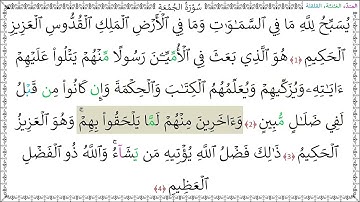 سُورَةُ الجُمُعَةِ
المدّ، الغنّة، القلقلة
يُسَبِّحُ لِلَّهِ مَا فِي ٱلسَّمَـٰوَٰتِ وَمَا فِي ٱلْأَرْضِ ٱلْمَلِكِ ٱلْقُدُّوسِ ٱلْعَزِيزِ
ٱلْحَكِيمِ ﴿١﴾ هُوَ ٱلَّذِي بَعَثَ فِي ٱلْأُمِّيِّـۧنَ رَسُولًا مِّنْهُمْ يَتْلُوا۟ عَلَيْهِمْ
ءَايَـٰتِهِۦ وَيُزَكِّيهِمْ وَيُعَلِّمُهُمُ ٱلْكِتَـٰبَ وَٱلْحِكْمَةَ وَإِن كَانُوا۟ مِن قَبْلُ
لَفِي ضَلَـٰلٍ مُّبِينٍ ﴿٢﴾ وَءَاخَرِينَ مِنْهُمْ لَمَّا يَلْحَقُوا۟ بِهِمْ ۚ وَهُوَ ٱلْعَزِيزُ
ٱلْحَكِيمُ ﴿٣﴾ ذَٰلِكَ فَضْلُ ٱللَّهِ يُؤْتِيهِ مَن يَشَآءُ ۚ وَٱللَّهُ ذُو ٱلْفَضْلِ
ٱلْعَظِيمِ ﴿٤﴾